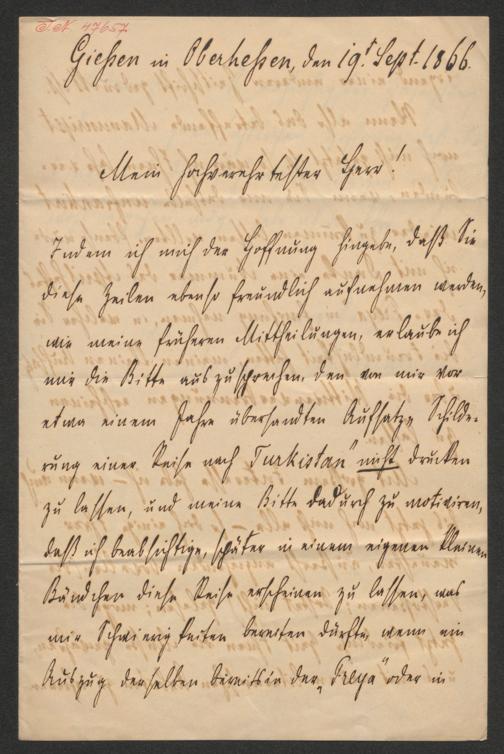 I. N. 47657
Gießen in Oberhessen, den 19t Sept. 1866.
Mein hochverehrtester Herr!
Indem ich mich der Hoffnung hingebe, daß Sie
diese Zeilen ebenso freundlich aufnehmen werden,
wie meine früheren Mittheilungen, erlaube ich
mir die Bitte auszusprechen, den von mir vor
etwa einem Jahre übersandten Aufsatz „Schilde-
rung einer Reise nach Turkistan" nicht drucken
zu lassen, und meine Bitte dadurch zu motiviren,
daß ich beabsichtige, später in einem eigenen kleinen
Bändchen diese Reise erscheinen zu lassen, was
mir Schwierigkeiten bereiten dürfte, wenn ein
Auszug derselben bereits in der „Freya" oder in